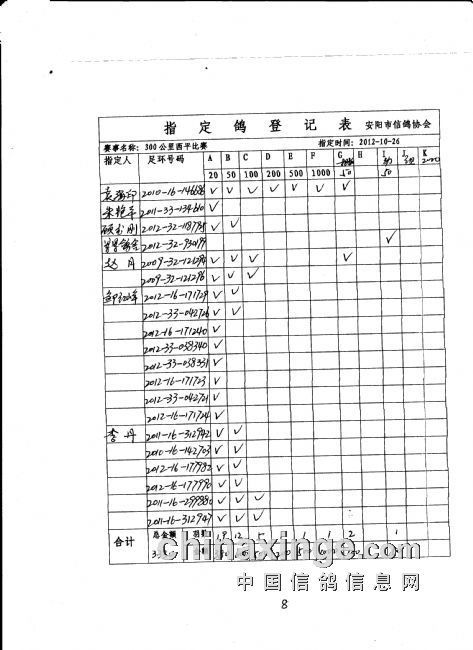 指定鸽登记表 安阳市信鸽协会
赛事名称：300公里西平比赛 指定时间：2012-10-26
指定人 足环号码 A B C D E F G H I J K
20 50 100 200 500 1000 50 50
2010-16-146686 √ √ √ √ √ √ √
2011-33-134610 √
2012-32-118795 √ √
2012-32-930199 √
赵月 2009-32-121294 √ √ √ √
2009-32-121296 √ √ √
2012-16-171729 √ √
2012-33-042726 √ √
2012-16-171240 √
2012-33-038340 √
2012-33-038331 √
2012-16-171723 √
2012-33-042721 √
2012-16-171724 √
李丹 2011-16-312942 √ √
2010-16-142703 √ √
2012-16-177982 √ √
2012-16-177990 √ √
2011-16-299880 √ √ √
2011-16-312947 √ √ √
合计 总金额 羽数 19 12 5 1 1 1 2 1
chinaxinge.com
中国信鸽信息网
8